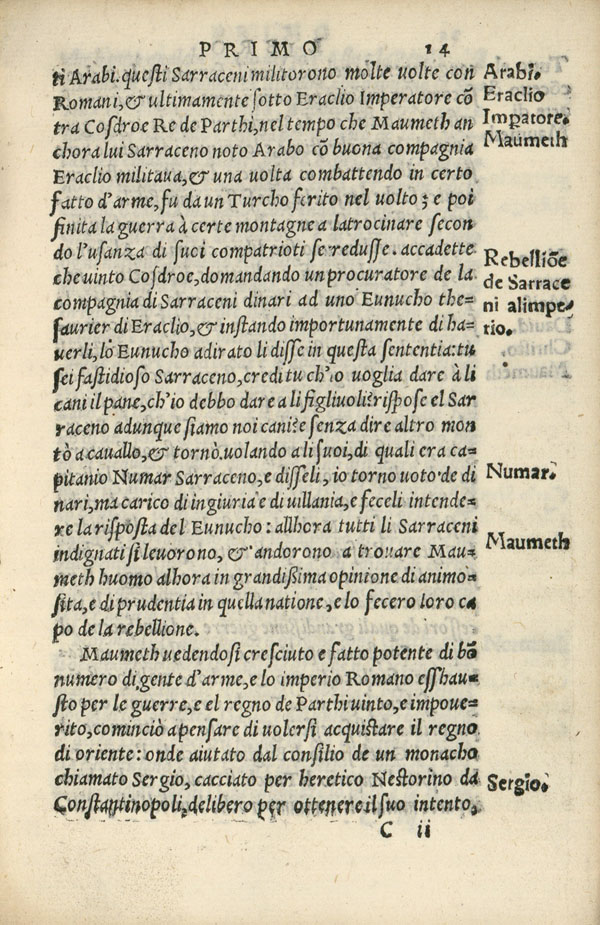 PRIMO 14
ti Arabi. questi Sarraceni militorono molte volte con
Romani, & ultimamente sotto Eraclio Imperatore cō
tra Cosdroe Re de Parthi, nel tempo che Maumeth an
chora lui Sarraceno noto Arabo cō buona compagnia
Eraclio militaua, & una volta combattendo in certo
fatto d'arme, fu da un Turcho ferito nel volto; e poi
finita la guerra à certe montagne a latrocinare secon
do l'usanza di suoi compatrioti se redusse. accadette
che uinto Cosdroe, domandando un procuratore de la
compagnia di Sarraceni dinari ad uno Eunucho the=
saurier di Eraclio, & instando importunamente di ha=
uerli, lo Eunucho adirato li disse in questa sententia: tu
sei fastidioso Sarraceno, credi tu ch'io voglia dare à li
cani il pane, ch'io debbo dare a li figliuoli? rispose el Sar
raceno adunque siamo noi cani? e senza dire altro mon
tò a cauallo, & tornò. uolando a li suoi, di quali era ca=
pitanio Numar Sarraceno, e disseli, io torno uoto de di
nari, ma carico di ingiuria e di uillania, e feceli intende=
re la risposta del Eunucho: allhora tutti li Sarraceni
indignati si leuorono, & andorono a trouare Mau=
meth huomo alhora in grandißima opinione di animo=
sita, e di prudentia in quella natione, e lo fecero loro ca
po de la rebellione.
Maumeth uedendosi cresciuto e fatto potente di bō
numero di gente d'arme, e lo imperio Romano esshau=
sto per le guerre, e el regno de Parthi uinto, e impoue=
rito, cominciò a pensare di volersi acquistare il regno
di oriente: onde aiutato dal consilio de un monacho
chiamato Sergio, cacciato per heretico Nestorino da
Constantinopoli, delibero per ottenere il suo intento,
C ii
Arabi.
Eraclio
Impatore.
Maumeth
Rebelliōe
de Sarrace
ni alimpe=
rio.
Numar.
Maumeth
Sergio.